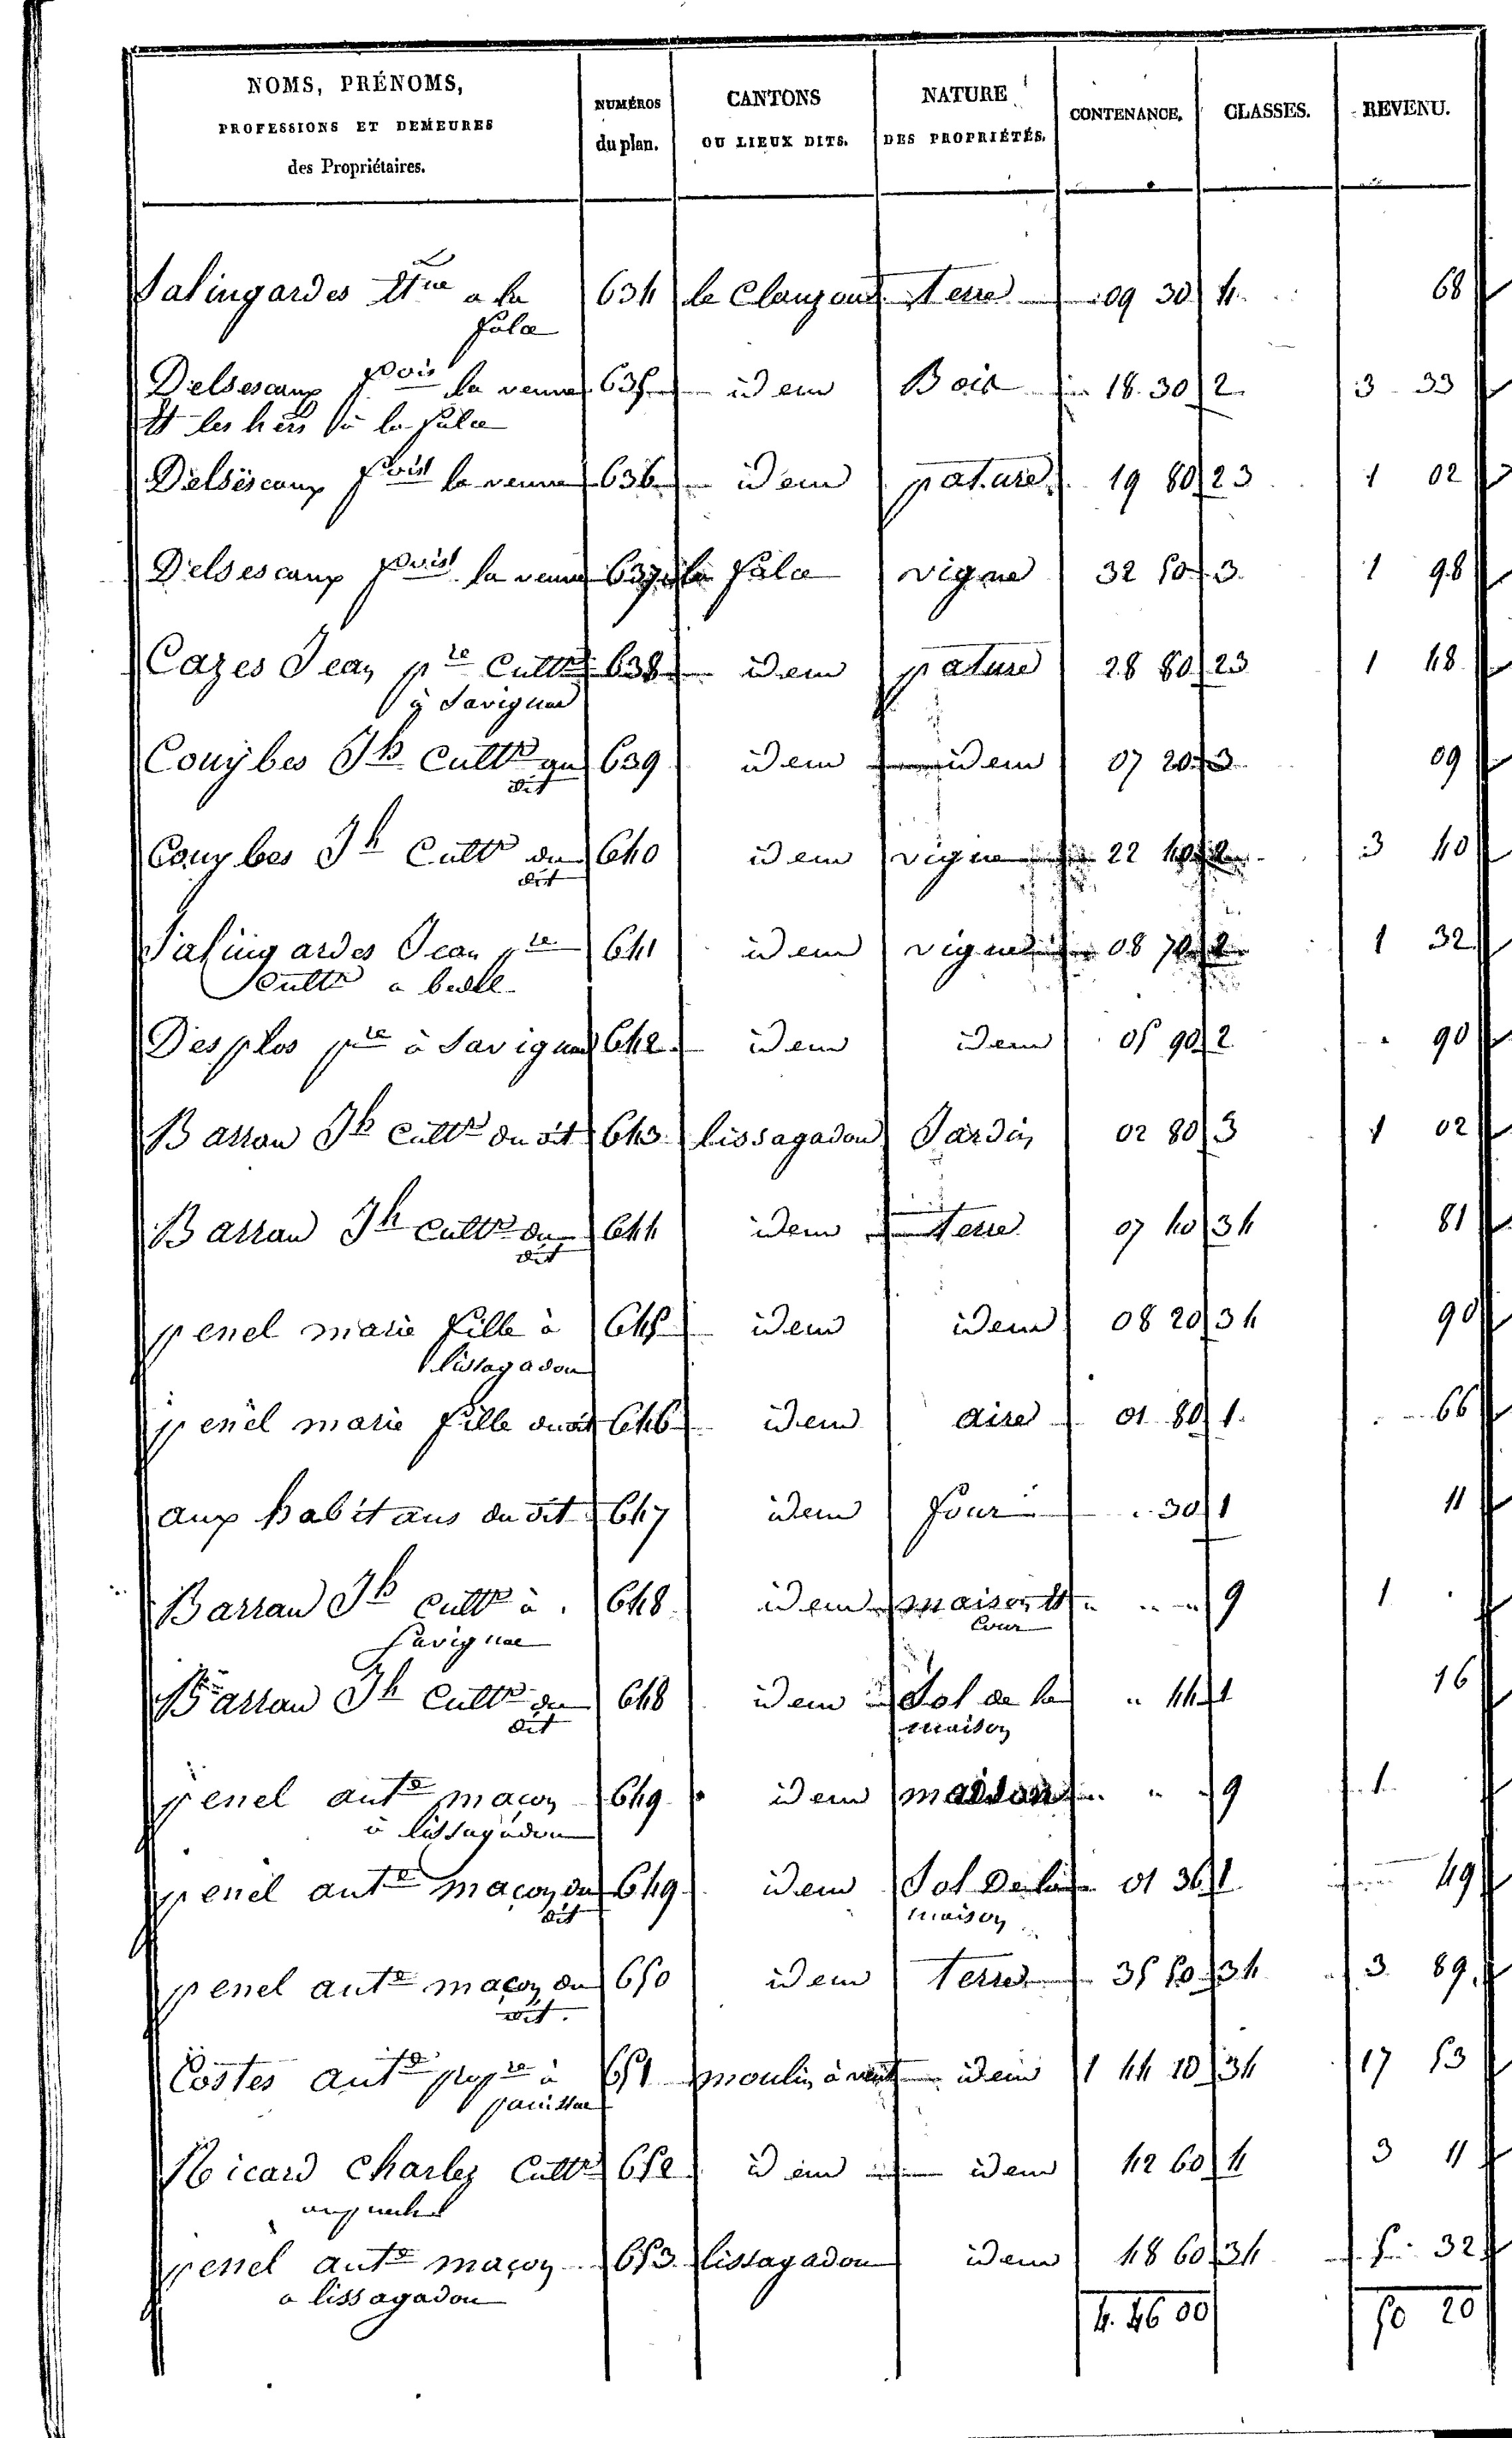 NOMS, PRÉNOMS, PROFESSIONS ET DEMEURES des Propriétaires. NUMÉROS du plan. CANTONS OU LIEUX DITS. NATURE DES PROPRIÉTÉS. CONTENANCE. CLASSES. REVENU.
Salingardes a la 634 le Clauzou terre 09 30 4 68
fale
Delsescaux fcois la veuve 635 idem Bois 18 30 2 3 33
Et les hers à la fale
Delsescaux fcois la veuve 636 idem pature 19 80 23 1 02
Delsescaux fcois la veuve 637 la fale vigne 32 50 3 1 98
Cazes Jean pre Cultr 638 idem pature 28 80 23 1 48
à Savignac
Couybes Jh Cultr au 639 idem idem 07 20 3 09
dit
Couybes Jh Cultr du 640 idem vigne 22 40 2 3 40
dit
Salingardes Jean pre 641 idem vigne 08 70 2 1 32
Cultr a
Desplos pre à Savignac 642 idem idem 05 90 2 90
Barrau Jh Cultr du dit 643 lissagadou Jardin 02 80 3 1 02
Barrau Jh Cultr du 644 idem terre 07 40 34 81
dit
penel marie fille à 645 idem idem 08 20 34 90
lissagadou
penel marie fille du dit 646 idem aire 01 80 1 66
aux habitans du dit 647 idem four 30 1 11
Barrau Jh Cultr à 648 idem maison et 9 1
Savignac Cour
Barrau Jh Cultr du 648 idem Sol de la 44 1 16
dit maison
penel ante maçon 649 idem maison 9 1
à lissagadou
penel ante maçon du 649 idem Sol De la 01 36 1 49
dit maison
penel ante maçon du 650 idem terre 35 50 34 3 89
dit.
Costes ante propre à 651 moulin à vent idem 1 44 10 34 17 53
Ricard Charles Cultr 652 idem idem 42 60 4 3 11
penel ante maçon 653 lissagadou idem 48 60 34 5 32
a lissagadou
4. 46 00 50 20